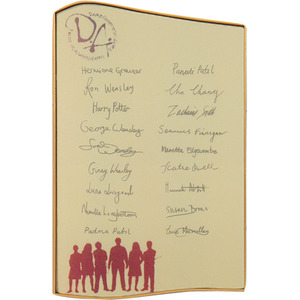 D.A.
Hermione Granger
Ron Weasley
Harry Potter
George Weasley
Weasley
Ginny Weasley
Luna Lovegood
Neville Longbottom
Padma Patil
Parvati Patil
Cho Chang
Zacharias Smith
Seamus Finnigan
Katie Bell
Hannah Abbott
Susan Bones